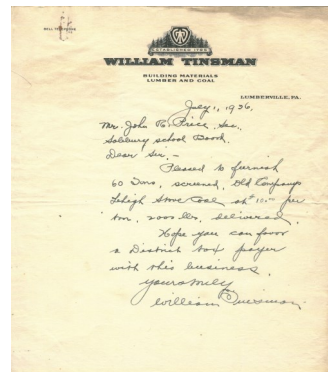 BELL TELEPHONE
ESTABLISHED 1785
WILLIAM TINSMAN
BUILDING MATERIALS
LUMBER AND COAL
LUMBERVILLE, PA.
July 1, 1936.
Mr. John R. Price, Sec.,
Solebury School Board,
Dear Sir,-
Pleased to furnish
60 Tons, screened, Old Company's
Lehigh Stove Coal at $10.00 per
ton, 2000 lbs, delivered.
Hope you can favor
a District tax payer
with this business,
Yours truly
William Tinsman